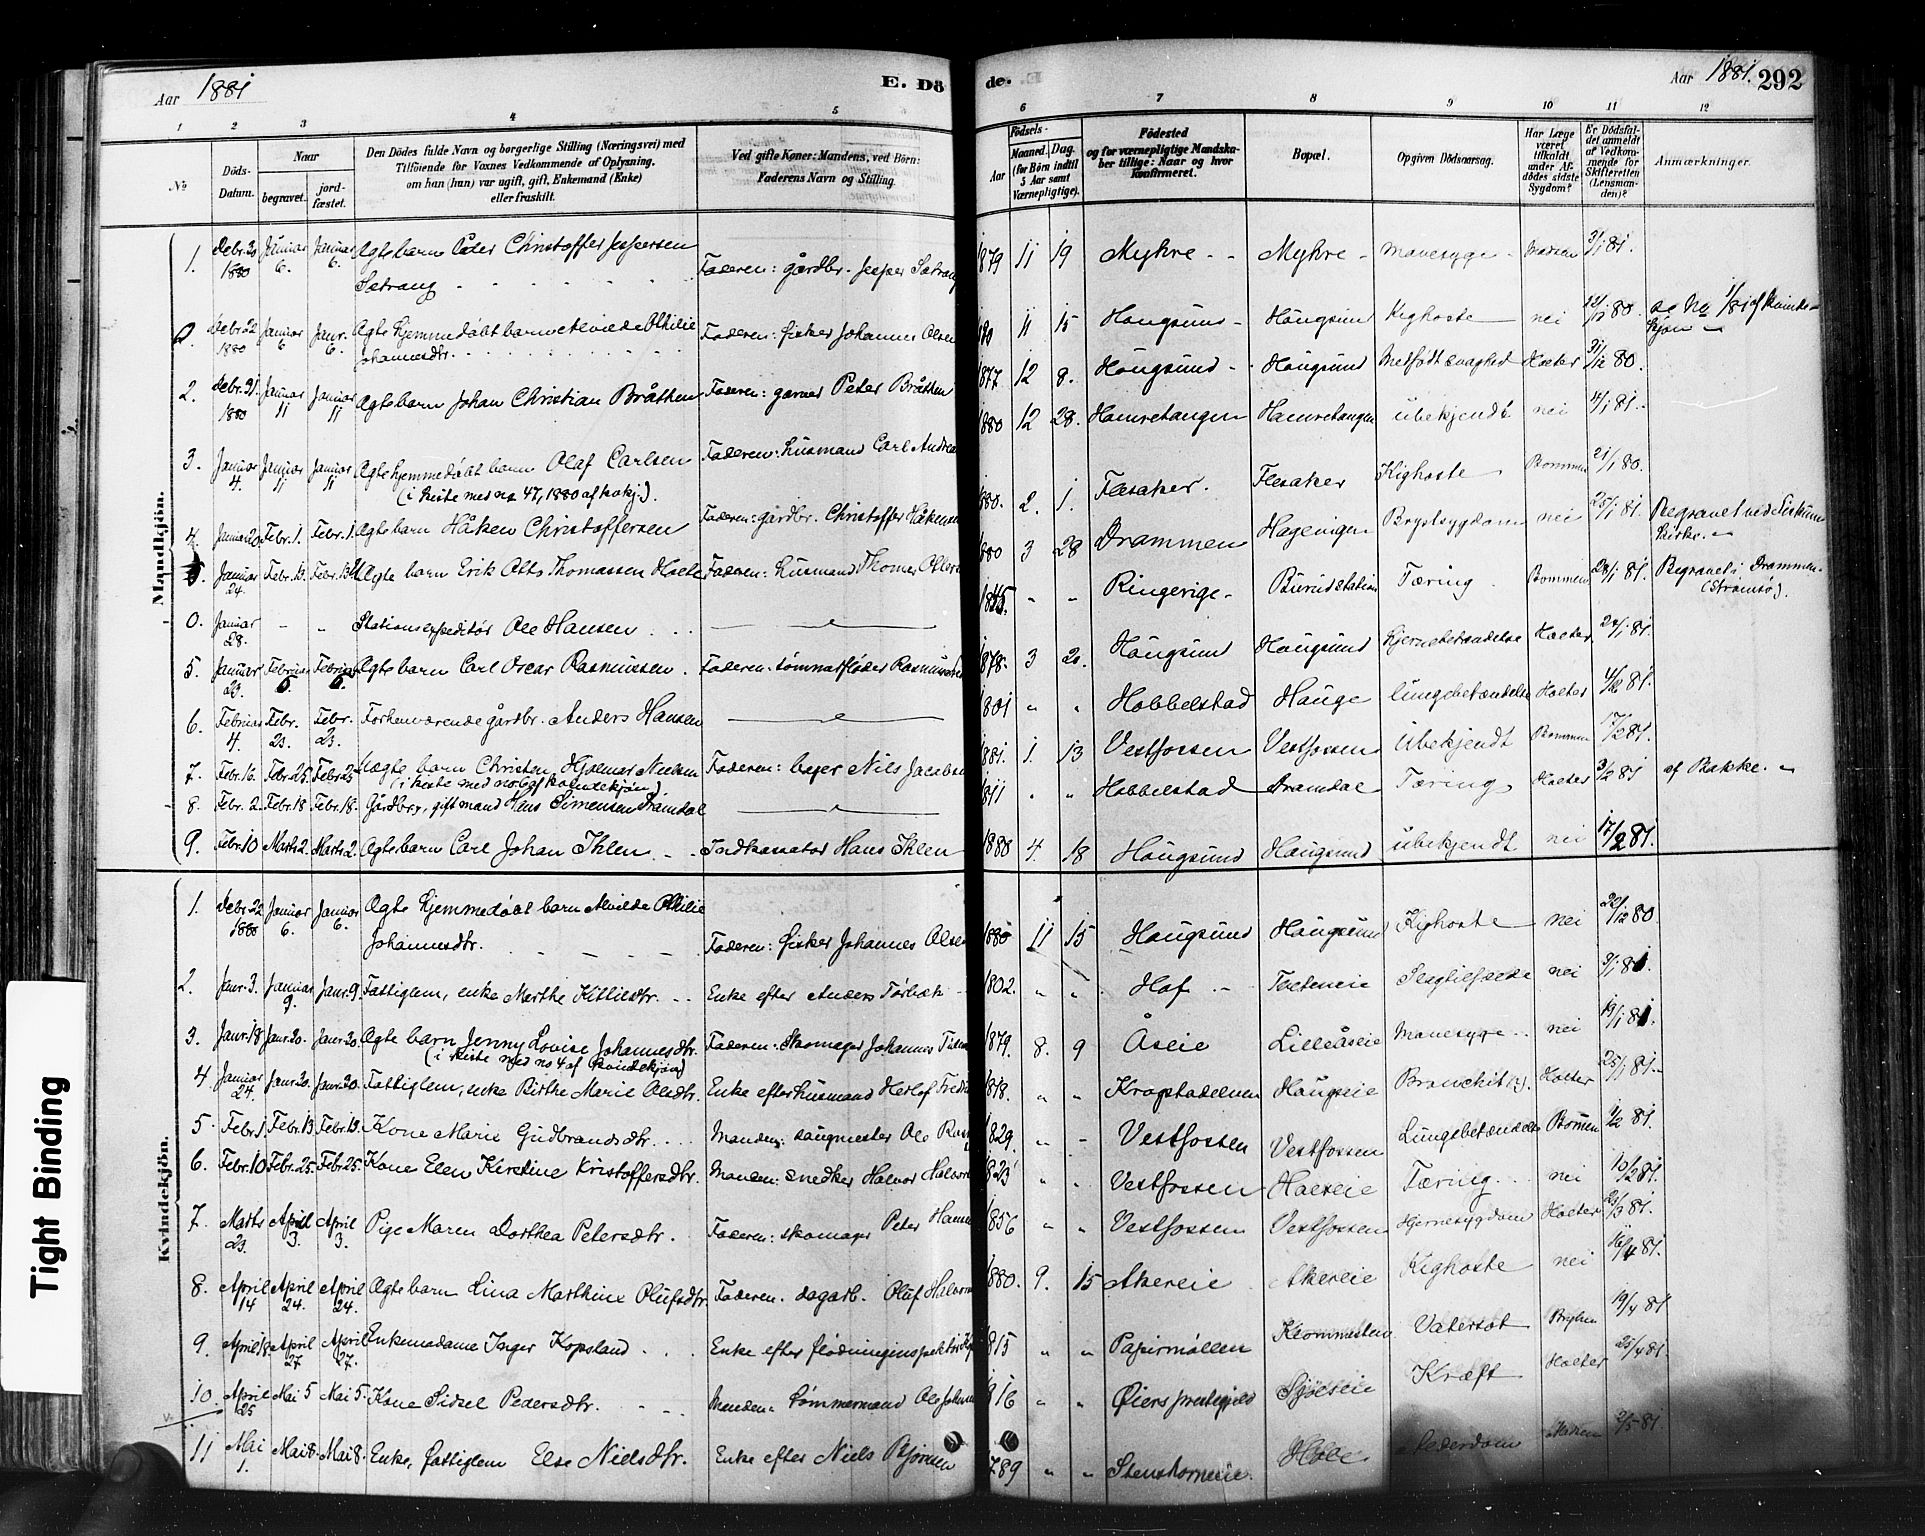 Aar 1881
E. Dö
de.
Aar 1881. 292
1 2 3 4 5 6 7 8 9 10 11 12
No
Döds-Datum.
Naar
begravet.
jord-fæstet.
Den Dödes fulde Navn og borgerlige Stilling (Næringsvei) med
Tilföiende for Voxnes Vedkommende af Oplysning,
om han (hun) var ugift, gift, Enkemand (Enke)
eller fraskilt.
Ved gifte Koner: Mandens, ved Börn:
Faderens Navn og Stilling.
Aar
Födsels-
Maaned. Dag.
(for Börn indtil
5 Aar samt
Værnepligtige).
Födested
og for værnepligtige Mandska-
ber tillige: Naar og hvor
konfirmeret.
Bopæl.
Opgiven Dödsaarsag.
Har Læge
været
tilkaldt
under Af-
dödes sidste
Sygdom?
Er Dödsfal-
det anmeldt
af Vedkom-
mende for
Skifteretten
(Lensman-
den)?
Anmærkninger.
Mandkjön.
1. Debr. 30 1880 Januar 6. Januar 6. Ægte barn Peter Christoffer Jespersen Setrang Faderen: gårdbr. Jesper Setrang 1879 11 19 Myhre Myhre Mavesyge Madsen 3/1 81.
0. Debr. 22 1880 Januar 6 Janr. 6. Ægte hjemmedøbt barn Alvilde Othilie Johannesdtr. Faderen: fisker Johannes Olsen 1880 11 15 Hougsund Hougsund Kighoste nei 22/12 80. se No 1/81 af kvinde-kjøn
2. Debr. 21 1880 Januar 11 Januar 11 Ægte barn Johan Christian Bråthen Faderen: garver Peter Bråthen 1877 12 8. Hougsund Hougsund Medfødt svaghed Holter 31/12 80.
3. Januar 4. Januar 11 Januar 11 Ægte hjemmedøbt barn Olaf Carlsen (i kiste med no 47, 1880 af kvkj.). Faderen: husmand Carl Andrea 1880 12 28. Hamretangen Hamretangen ubekjendt nei 4/1 81.
4. Januar 20 Febr. 1. Febr. 1. Ægte barn Håken Christoffersen Faderen: gårdbr. Christoffer Håkensen 1880. 2. 1. Flesaker. Flesaker Kighoste Bommen 21/1 80.
Januar 24. Febr. 13. Febr. 13 Uægte barn Erik Otto Thomassen Faderen: husmand Thomas Olsen 1880 3 28 Drammen Hagevigen Brystsygdom nei 25/1 81. Begravet ved Fiskum Kirke.
0. Januar 28. - „ Stationsexpeditør Ole Hansen 1845. „ „ Ringerige Burud station Tæring. Bommen 28/1 81. Begravet i Drammen (Strømsø).
5. Januar 23. Februar 5. Februar 5. Ægte barn Carl Oscar Rasmussen. Faderen: tømmerfløder 1878. 3 20. Hougsund Hougsund Hjernebetændelse Holter 24/1 81.
6. Februar 4. Febr. 23. Febr. 23. Forhenværende gårdbr. Anders Hansen 1801 „ „ Hobbelstad Hauge lungebetændelse Holter 4/2 81.
7. Febr. 16. Febr. 25. Febr. 25 Uægte barn Christen Hjalmar Nielsen (i kiste med no. 6 af kvindekjøn) Faderen: bager Nils Jacobsen 1881. 1. 13 Vestfossen Vestfossen Ubekjendt Bommen 17/2 81.
8. Febr. 2. Febr. 18 Febr. 18. Gårdbr., gift mand Hans Simensen Dramdal 1811 „ „ Hobbelstad Dramdal Tæring Holter 3/2 81 af Bakke.
9. Febr. 10 Marts 2. Marts 2. Ægte barn Carl Johan Ihlen Indkassator Hans Ihlen 1880 4. 18 Hougsund Hougsund ubekjendt nei 17/2 81.
Kvindekjön.
1. Debr. 22 1880 Januar 6. Januar 6. Ægte hjemmedøbt barn Alvilde Othilie Johannesdtr. Faderen: fisker Johannes Olsen 1880 11 15 Hougsund Hougsund Kighoste nei 22/12 80
2. Janr. 3. Januar 9. Janr. 9. Fattiglem, enke Marthe Kittilsdtr. Enke efter Anders Tørbek 1802. „ „ Hof Teteneie nei 3/1 81.
3. Janr. 18 Janr. 20. Janr. 20 Ægte barn Jenny Lovise Johannesdtr. (i kiste med no 4 af kvindekjøn) Faderen: skomager Johannes 1879. 8. 9 Åseie Lilleåseie Mavesyge nei 19/1 81.
4 Januar 24. Janr. 30. Janr. 30. Fattiglem, enke Birthe Marie Olsdtr. Enke efter husmand Herlof 1819. „ „ Krogstadelven Hougseie Bronchit Holter 25/1 81.
5. Febr. 1 Febr. 13 Febr. 13. Kone Marie Gudbrandsdtr. Manden: saugmester Ole 1829. „ - Vestfossen Vestfossen Lungebetændelse Bommen 1/2 81.
6. Febr. 10 Febr. 25. Febr. 25. Kone Elen Kirstine Kristoffersdtr. Manden: snedker Halvor Halvors 1823 „ „ Vestfossen Holseie Tæring. nei 10/2 81.
7. Marts 23. April 3. April 3. Pige Maren Dorthea Petersdtr. Faderen: skomager Peter Hansen 1856 „ „ Vestfossen Vestfossen Hjernesygdom Holter 25/3 81.
8. April 14 April 24. April 24. Ægte barn Lina Marthine Olufsdtr. Faderen. dagarb. Oluf Halvorsen 1880. 9. 15 Akereie Akereie Kighoste nei 16/4 81.
9. April 18. April 27 April 27. Enkemadame Inger Kopsland Enke efter flødningsinspektør 1815 „ „ Papirmøllen Krommesten Vatersot 19/4 81
10. April 25 Mai 5 Mai 5. Kone Sidsel Pedersdtr. Manden: tømmermand Ole Johnsen 1816 „ „ Øiers prestegjeld Sjøleie Kræft Holter 25/4 81.
11 Mai 1. Mai 8. Mai 8. Enke, fattiglem Else Nielsdtr. Enke efter Niels Bjørnsen 1789 „ „ Stenshorneie Hole Alderdom Madsen 2/5 81.
Tight Binding